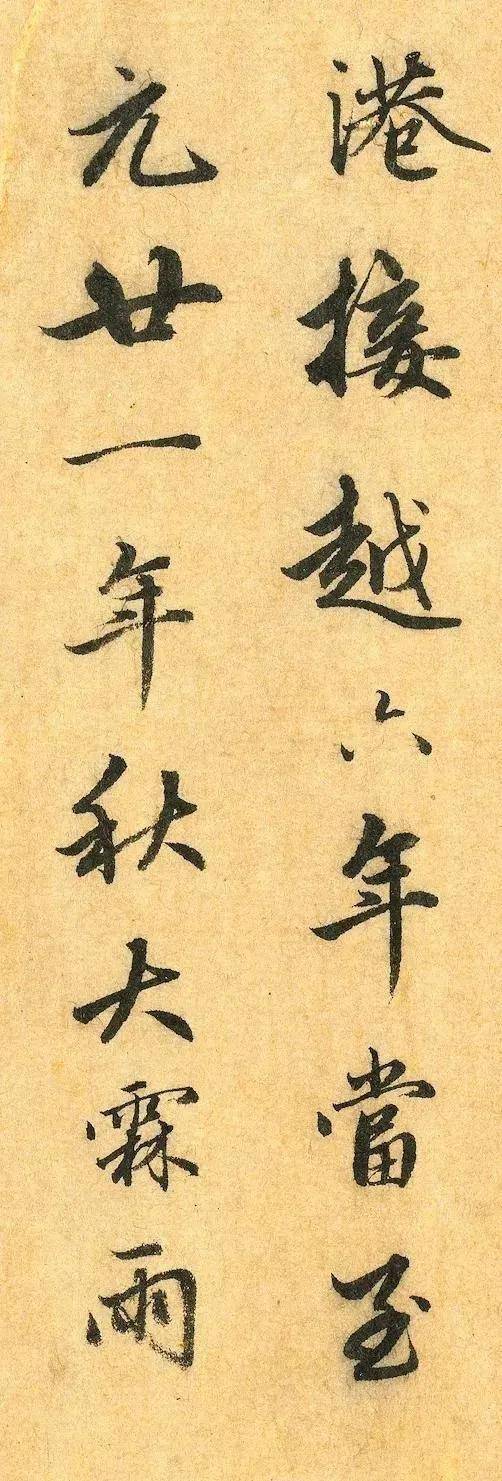 港接越六年當至
元廿一年秋大霖雨